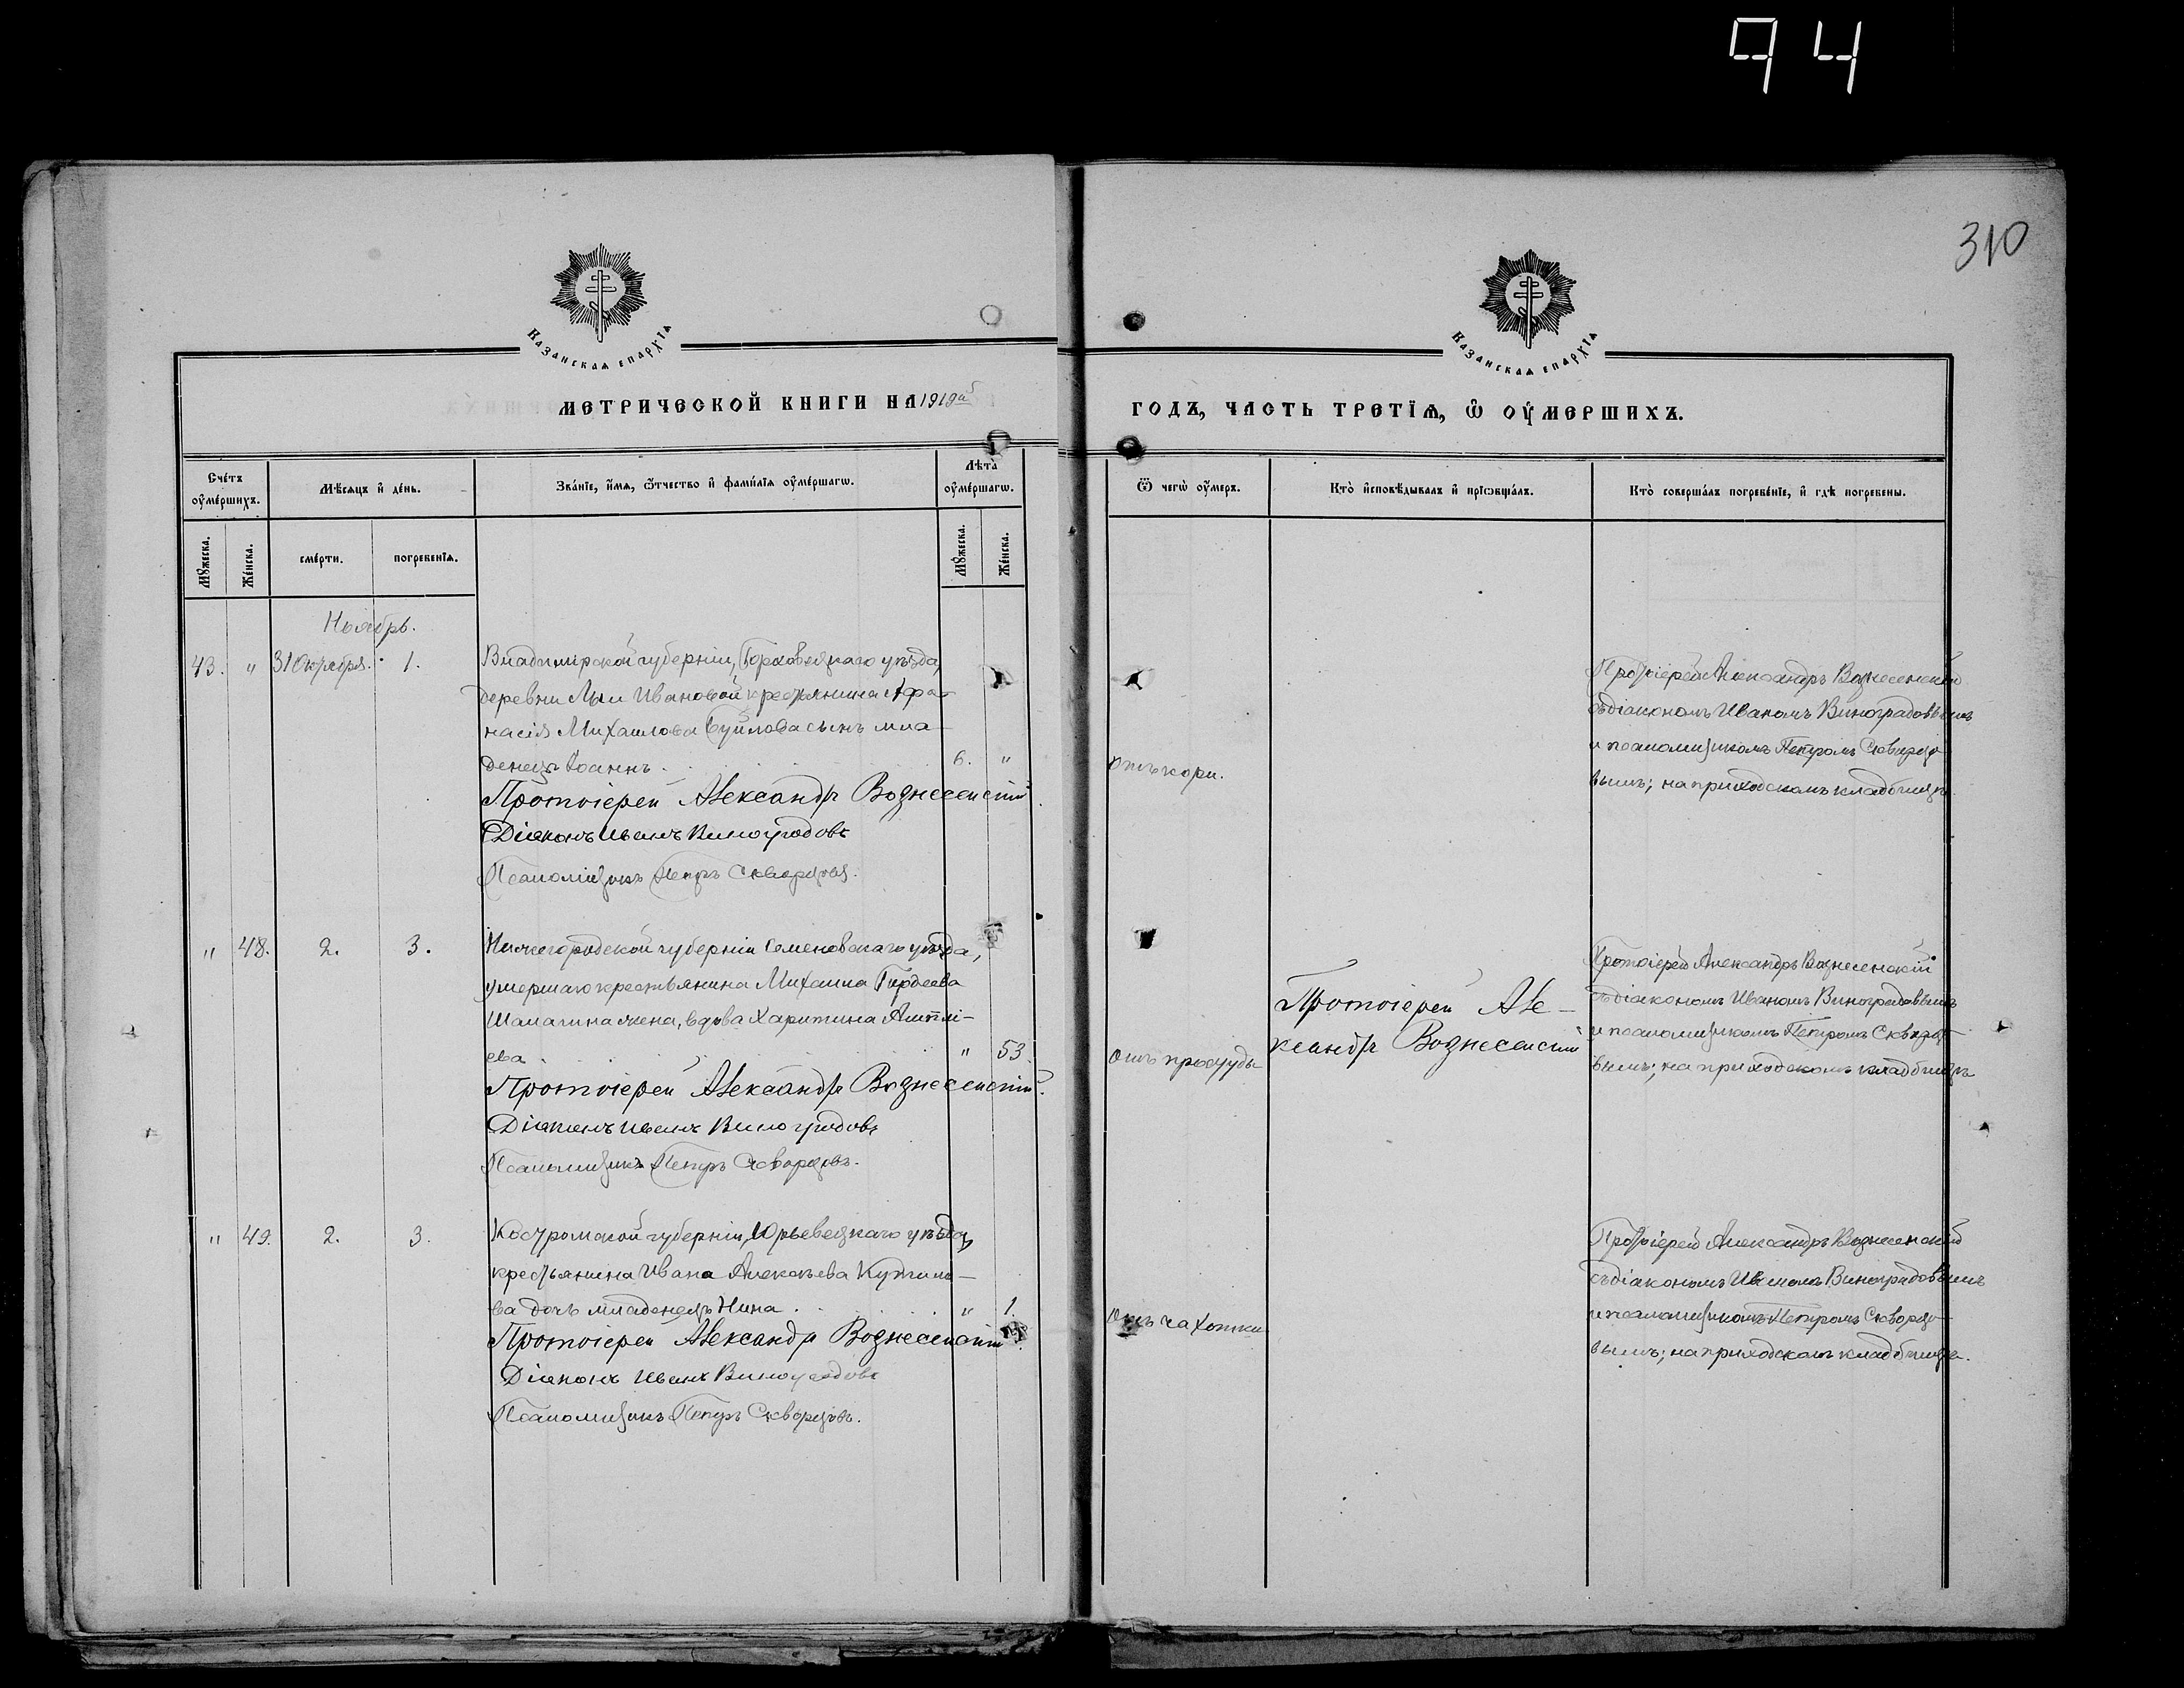 94
310
Казанская епархїа
Казанская епархїа
МЕТРИЧЕСКОЙ КНИГИ НА 1919й
ГОДЪ, ЧАСТЬ ТРЕТЇѦ, Ѡ ОУМЕРШИХЪ.
Счётъ оумершихъ.
Мѣсяцъ и день.
Званїе, имя, отчество и фамилїя оумершагѡ.
Лѣта оумершагѡ.
Ѿ чегѡ оумеръ.
Кто исповѣдывалъ и прїобщалъ.
Кто совершалъ погребенїе, и гдѣ погребены.
Мужеска.
Женска.
смерти.
погребенїя.
Мужеска.
Женска.
Ноябрь.
43. " 31 Октября. 1.
Владимирской губерніи, Горховецкаго уѣзда,
деревни Ивановой крестьянина Афа-
насія Михаилова сынъ мла-
денецъ Іоаннъ. 6. "
Протоіерей Александръ Вознесенскій.
Діаконъ Иванъ Виноградовъ
Псаломщикъ Петръ Скворцовъ.
отъ кори.
Протоіерей Александръ Вознесенскій
съ діакономъ Иваномъ Виноградовымъ
и псаломщикомъ Петромъ Скворцо-
вымъ; на приходскомъ кладбищѣ.
" 48. 2. 3.
Нижегородской губерніи Семеновскаго уѣзда,
умершаго крестьянина Михаила Гордеева
Шамагина жена, вдова Харитина
ева " 53.
Протоіерей Александръ Вознесенскій.
Діаконъ Иванъ Виноградовъ
Псаломщикъ Петръ Скворцовъ.
отъ простуды
Протоіерей Але-
ксандръ Вознесенскій
Протоіерей Александръ Вознесенскій
съ діакономъ Иваномъ Виноградовымъ
и псаломщикомъ Петромъ Скворцо-
вымъ; на приходскомъ кладбищѣ
" 49. 2. 3.
Костромской губерніи, Юрьевецкаго уѣзда,
крестьянина Ивана Алексѣева
ва дочь младенецъ Нина. " 1.
Протоіерей Александръ Вознесенскій.
Діаконъ Иванъ Виноградовъ
Псаломщикъ Петръ Скворцовъ.
Отъ чахотки
Протоіерей Александръ Вознесенскій
съ діакономъ Иваномъ Виноградовымъ
и псаломщикомъ Петромъ Скворцо-
вымъ; на приходскомъ кладбищѣ.